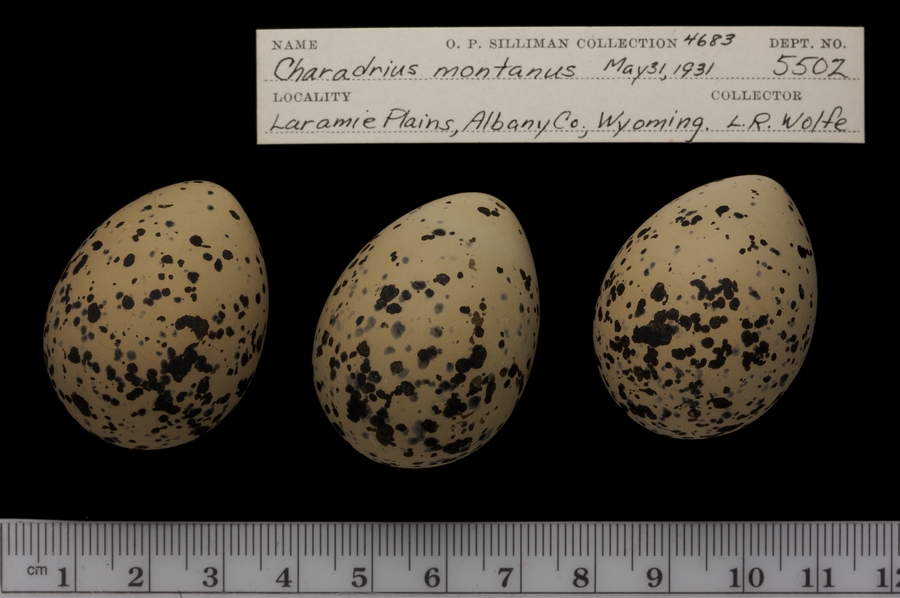 NAME O. P. SILLIMAN COLLECTION 4683 DEPT. NO.
Charadrius montanus May 31, 1931 5502
LOCALITY COLLECTOR
Laramie Plains, Albany Co., Wyoming. L.R. Wolfe
cm 1 2 3 4 5 6 7 8 9 10 11 12